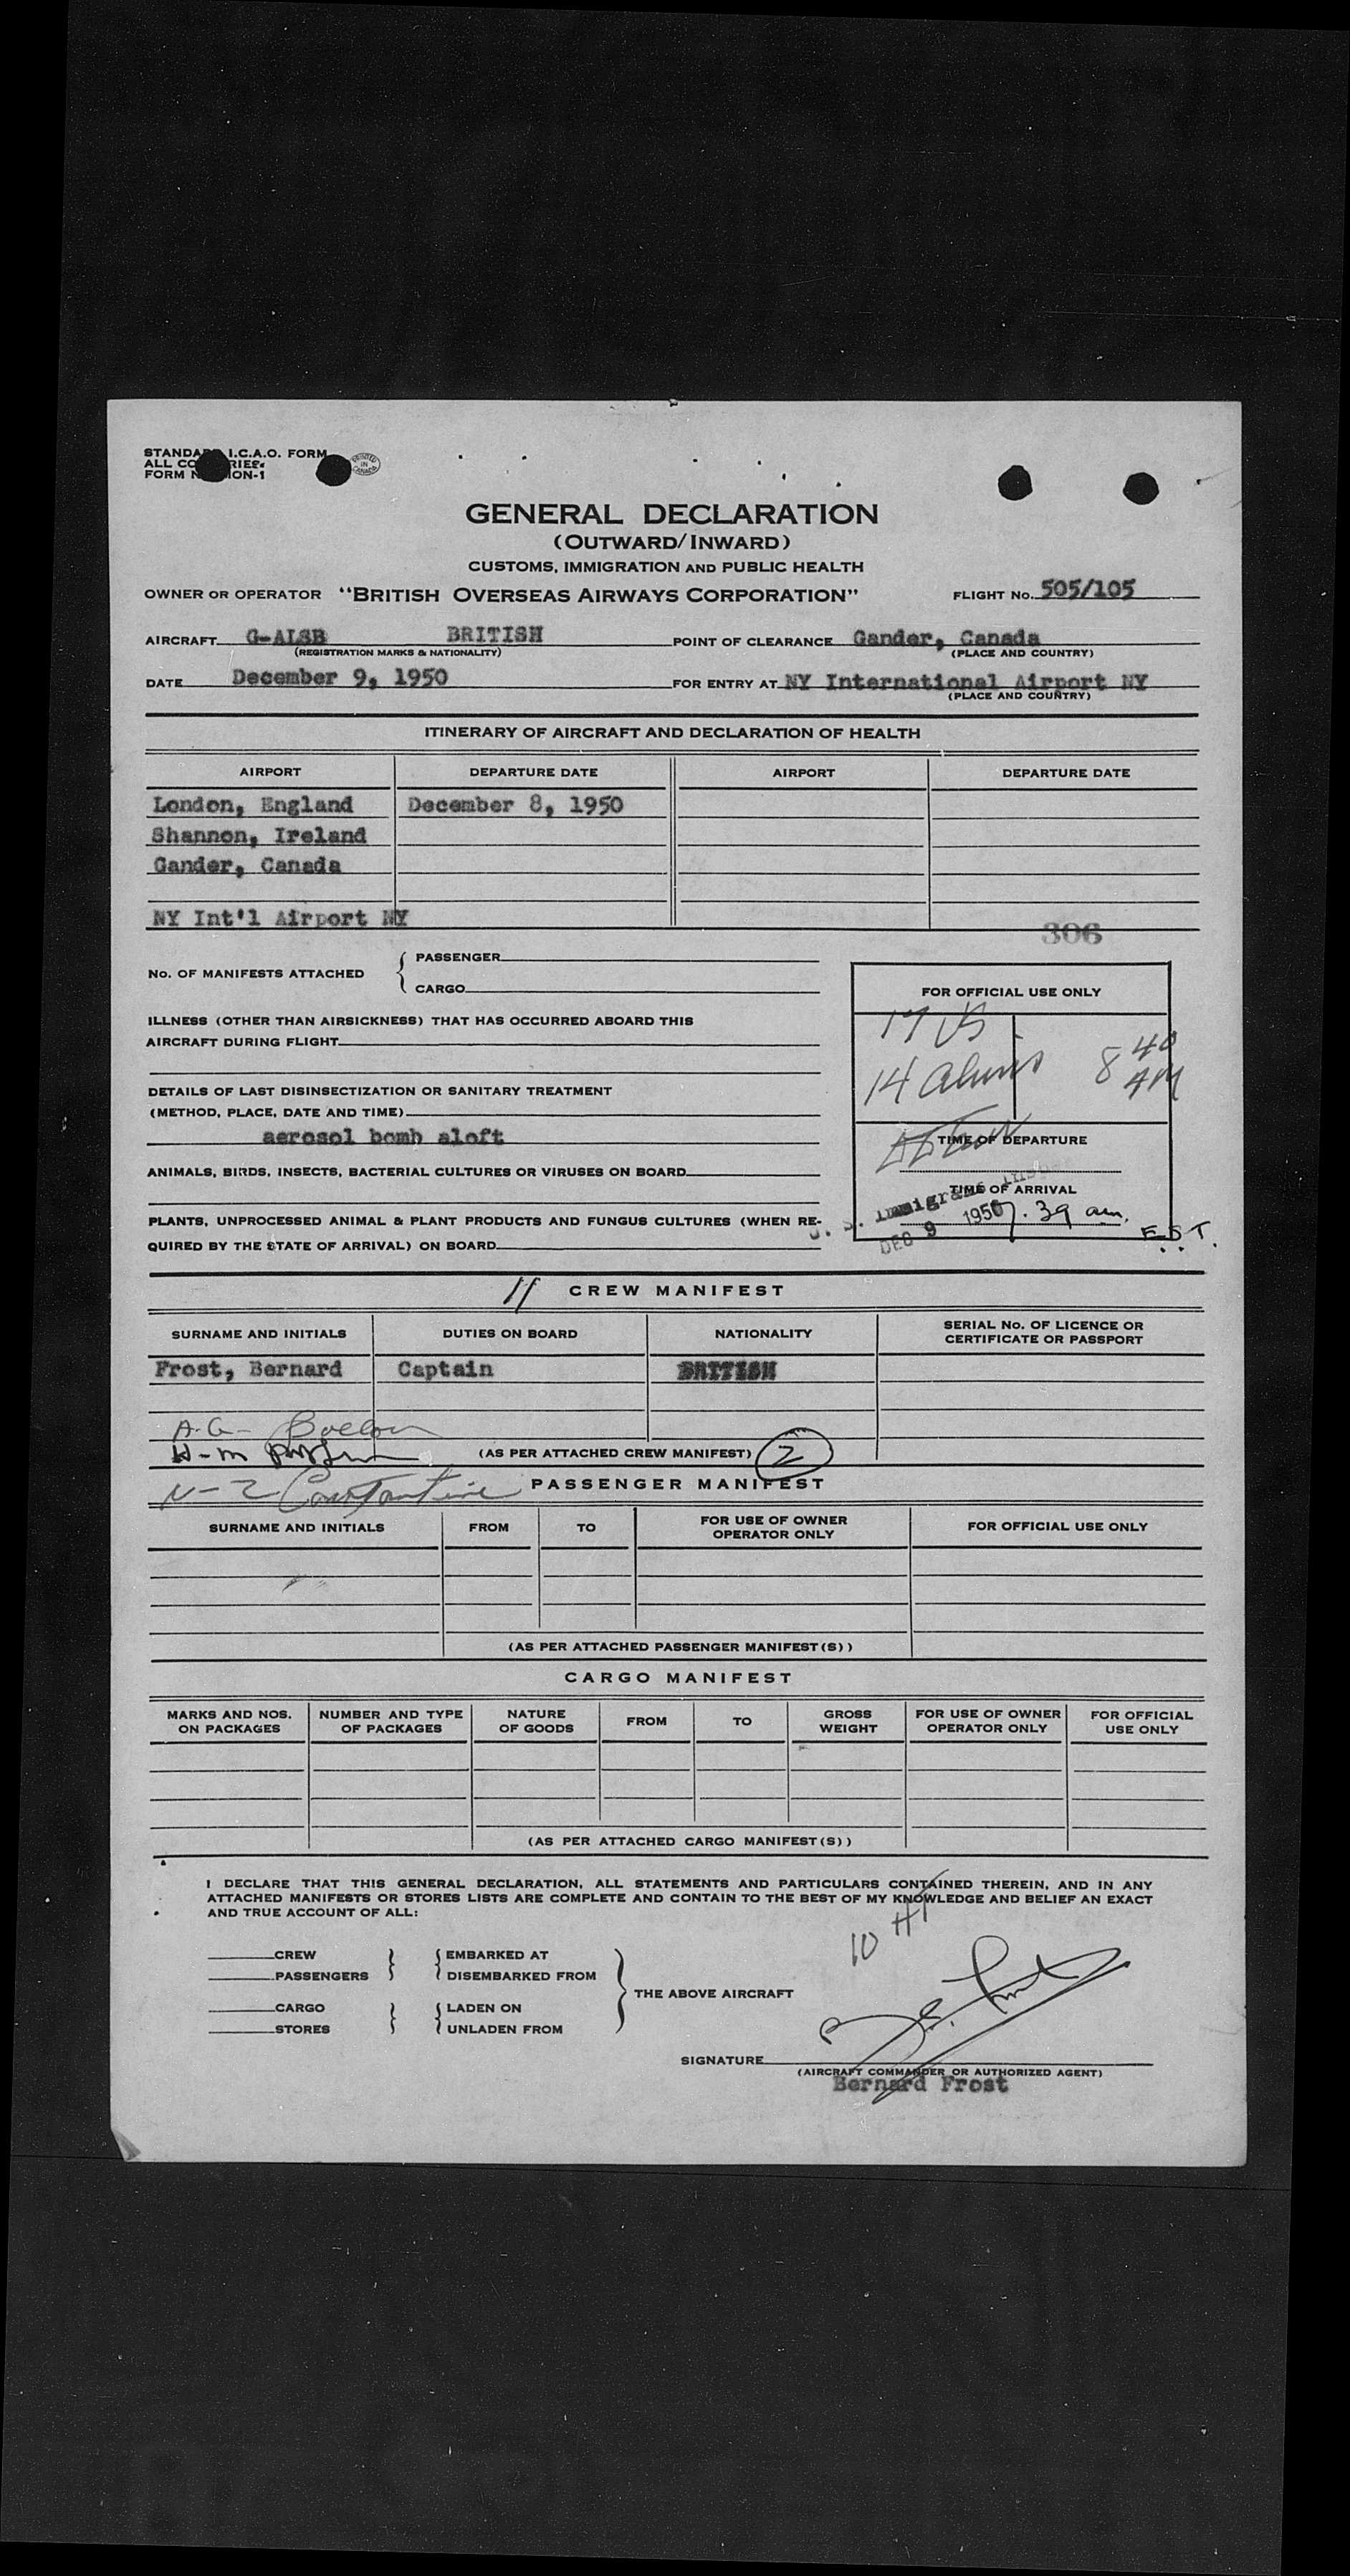 STANDARD I.C.A.O. FORM
ALL COUNTRIES
FORM No. ION-1
PRINTED IN CANADA
GENERAL DECLARATION
(OUTWARD/INWARD)
CUSTOMS, IMMIGRATION AND PUBLIC HEALTH
OWNER OR OPERATOR "BRITISH OVERSEAS AIRWAYS CORPORATION" FLIGHT No. 505/105
AIRCRAFT G-ALSB BRITISH POINT OF CLEARANCE Gander, Canada
(REGISTRATION MARKS & NATIONALITY) (PLACE AND COUNTRY)
DATE December 9, 1950 FOR ENTRY AT NY International Airport NY
(PLACE AND COUNTRY)
ITINERARY OF AIRCRAFT AND DECLARATION OF HEALTH
AIRPORT DEPARTURE DATE AIRPORT DEPARTURE DATE
London, England December 8, 1950
Shannon, Ireland
Gander, Canada
NY Int'l Airport NY
306
No. OF MANIFESTS ATTACHED { PASSENGER
CARGO
FOR OFFICIAL USE ONLY
17 US
14 Aliens 8 40 AM
ILLNESS (OTHER THAN AIRSICKNESS) THAT HAS OCCURRED ABOARD THIS
AIRCRAFT DURING FLIGHT
DETAILS OF LAST DISINSECTIZATION OR SANITARY TREATMENT
(METHOD, PLACE, DATE AND TIME)
aerosol bomb aloft
TIME OF DEPARTURE
ANIMALS, BIRDS, INSECTS, BACTERIAL CULTURES OR VIRUSES ON BOARD
TIME OF ARRIVAL
U. S. Immigrant Insp
DEC 9 1950
7.39 am. E.S.T.
PLANTS, UNPROCESSED ANIMAL & PLANT PRODUCTS AND FUNGUS CULTURES (WHEN RE-
QUIRED BY THE STATE OF ARRIVAL) ON BOARD
11 CREW MANIFEST
SURNAME AND INITIALS DUTIES ON BOARD NATIONALITY SERIAL No. OF LICENCE OR CERTIFICATE OR PASSPORT
Frost, Bernard Captain BRITISH
A.G-
H-M (AS PER ATTACHED CREW MANIFEST) 2
N-2 Constantine PASSENGER MANIFEST
SURNAME AND INITIALS FROM TO FOR USE OF OWNER OPERATOR ONLY FOR OFFICIAL USE ONLY
(AS PER ATTACHED PASSENGER MANIFEST(S))
CARGO MANIFEST
MARKS AND NOS. ON PACKAGES NUMBER AND TYPE OF PACKAGES NATURE OF GOODS FROM TO GROSS WEIGHT FOR USE OF OWNER OPERATOR ONLY FOR OFFICIAL USE ONLY
(AS PER ATTACHED CARGO MANIFEST(S))
I DECLARE THAT THIS GENERAL DECLARATION, ALL STATEMENTS AND PARTICULARS CONTAINED THEREIN, AND IN ANY
ATTACHED MANIFESTS OR STORES LISTS ARE COMPLETE AND CONTAIN TO THE BEST OF MY KNOWLEDGE AND BELIEF AN EXACT
AND TRUE ACCOUNT OF ALL:
10 HT
CREW EMBARKED AT
PASSENGERS DISEMBARKED FROM
THE ABOVE AIRCRAFT
CARGO LADEN ON
STORES UNLADEN FROM
SIGNATURE B. Frost
(AIRCRAFT COMMANDER OR AUTHORIZED AGENT)
Bernard Frost